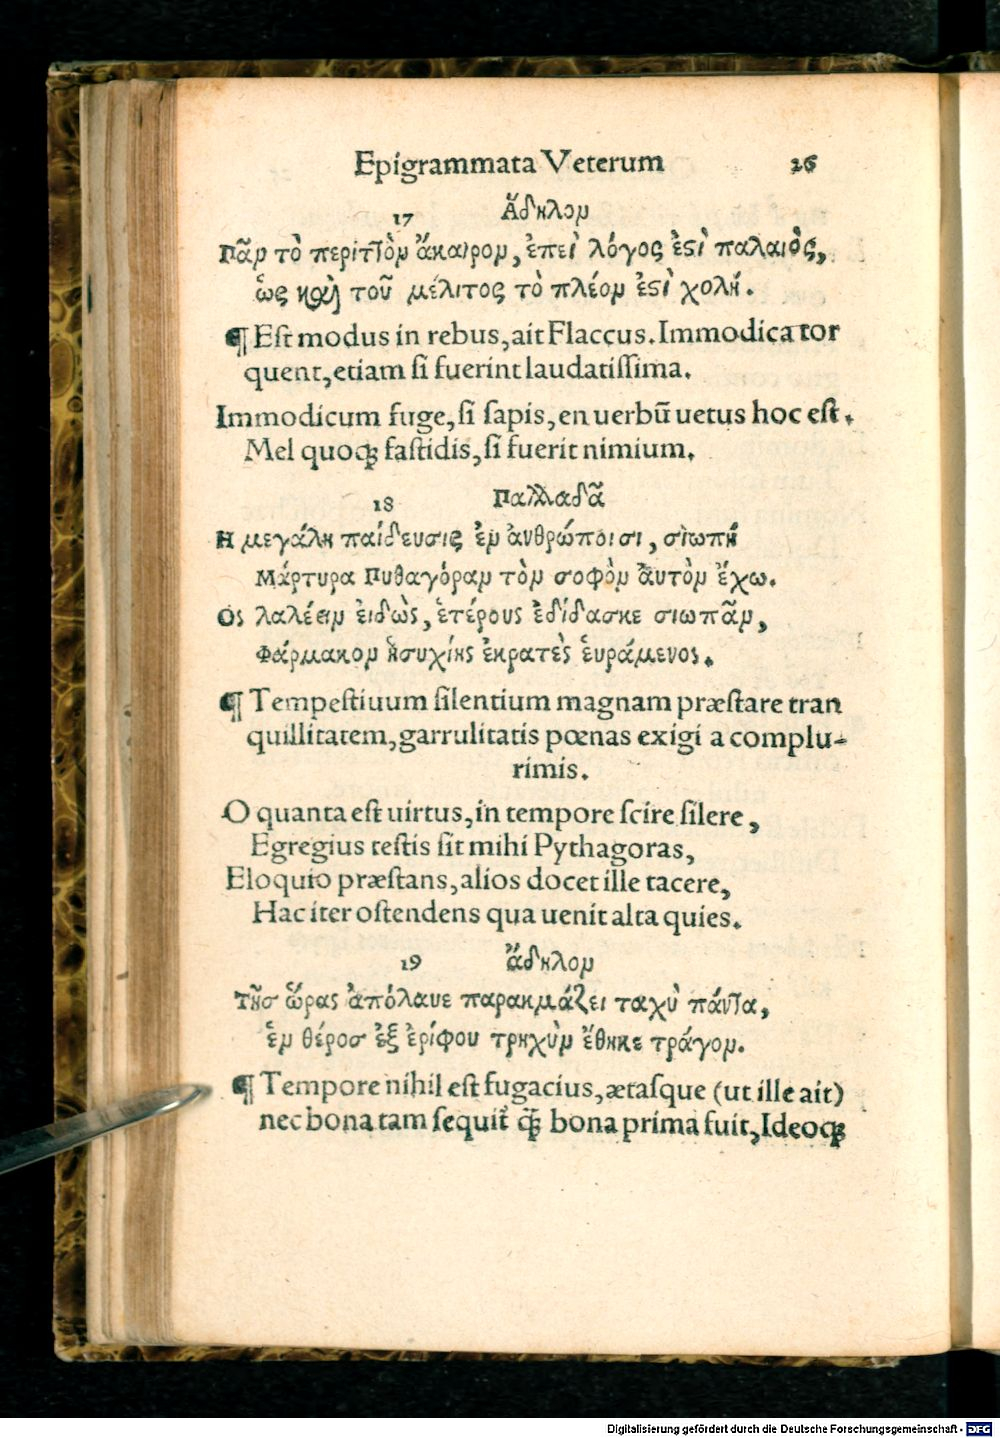 Epigrammata Veterum 26
17 Ἄδηλον
Πᾶν τὸ περιττὸν ἄκαιρον, ἐπεὶ λόγος ἐϛὶ παλαιὸς,
ὡς καὶ τοῦ μέλιτος τὸ πλέον ἐϛὶ χολή.
¶ Est modus in rebus, ait Flaccus. Immodica tor
quent, etiam si fuerint laudatissima.
Immodicum fuge, si sapis, en uerbū uetus hoc est.
Mel quoqꝫ fastidis, si fuerit nimium.
18 Παλλαδᾶ
Η μεγάλη παίδευσις ἐν ἀνθρώποισι, σιωπή
Μάρτυρα Πυθαγόραν τὸν σοφὸν ἀυτὸν ἔχω.
Ος λαλέειν ἐιδὼς, ἑτέρους ἐδίδασκε σιωπᾶν,
Φάρμακον ἡσυχίης ἐκρατὲς ἑυράμενος.
¶ Tempestiuum silentium magnam præstare tran
quillitatem, garrulitatis pœnas exigi a complu-
rimis.
O quanta est uirtus, in tempore scire silere,
Egregius testis sit mihi Pythagoras,
Eloquio præstans, alios docet ille tacere,
Hac iter ostendens qua uenit alta quies.
19 Ἄδηλον
Τῆσ ὥρας ἀπόλαυε παρακμάζει ταχὺ πάντα,
ἑν θέροσ ἐξ ἐρίφου τρηχὺν ἔθηκε τράγον.
¶ Tempore nihil est fugacius, ætasque (ut ille ait)
nec bona tam sequit᷑ qꝫ̃ bona prima fuit, Ideoqꝫ
Digitalisierung gefördert durch die Deutsche Forschungsgemeinschaft - DFG